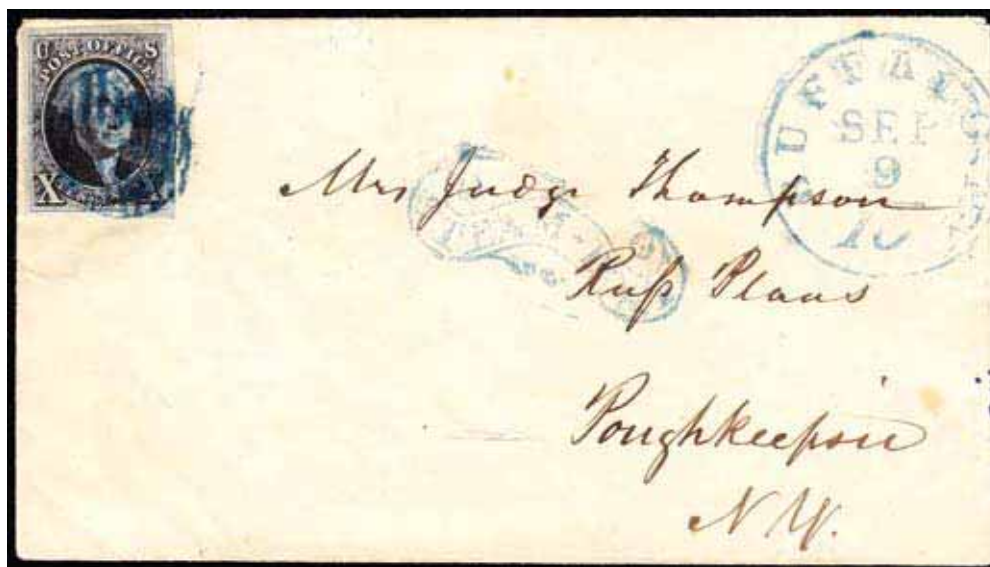 U S
POST OFFICE
X X
BUFFALO
SEP
9
10
Mrs Judge Thompson
Plaas
Poughkeepsie
N Y.